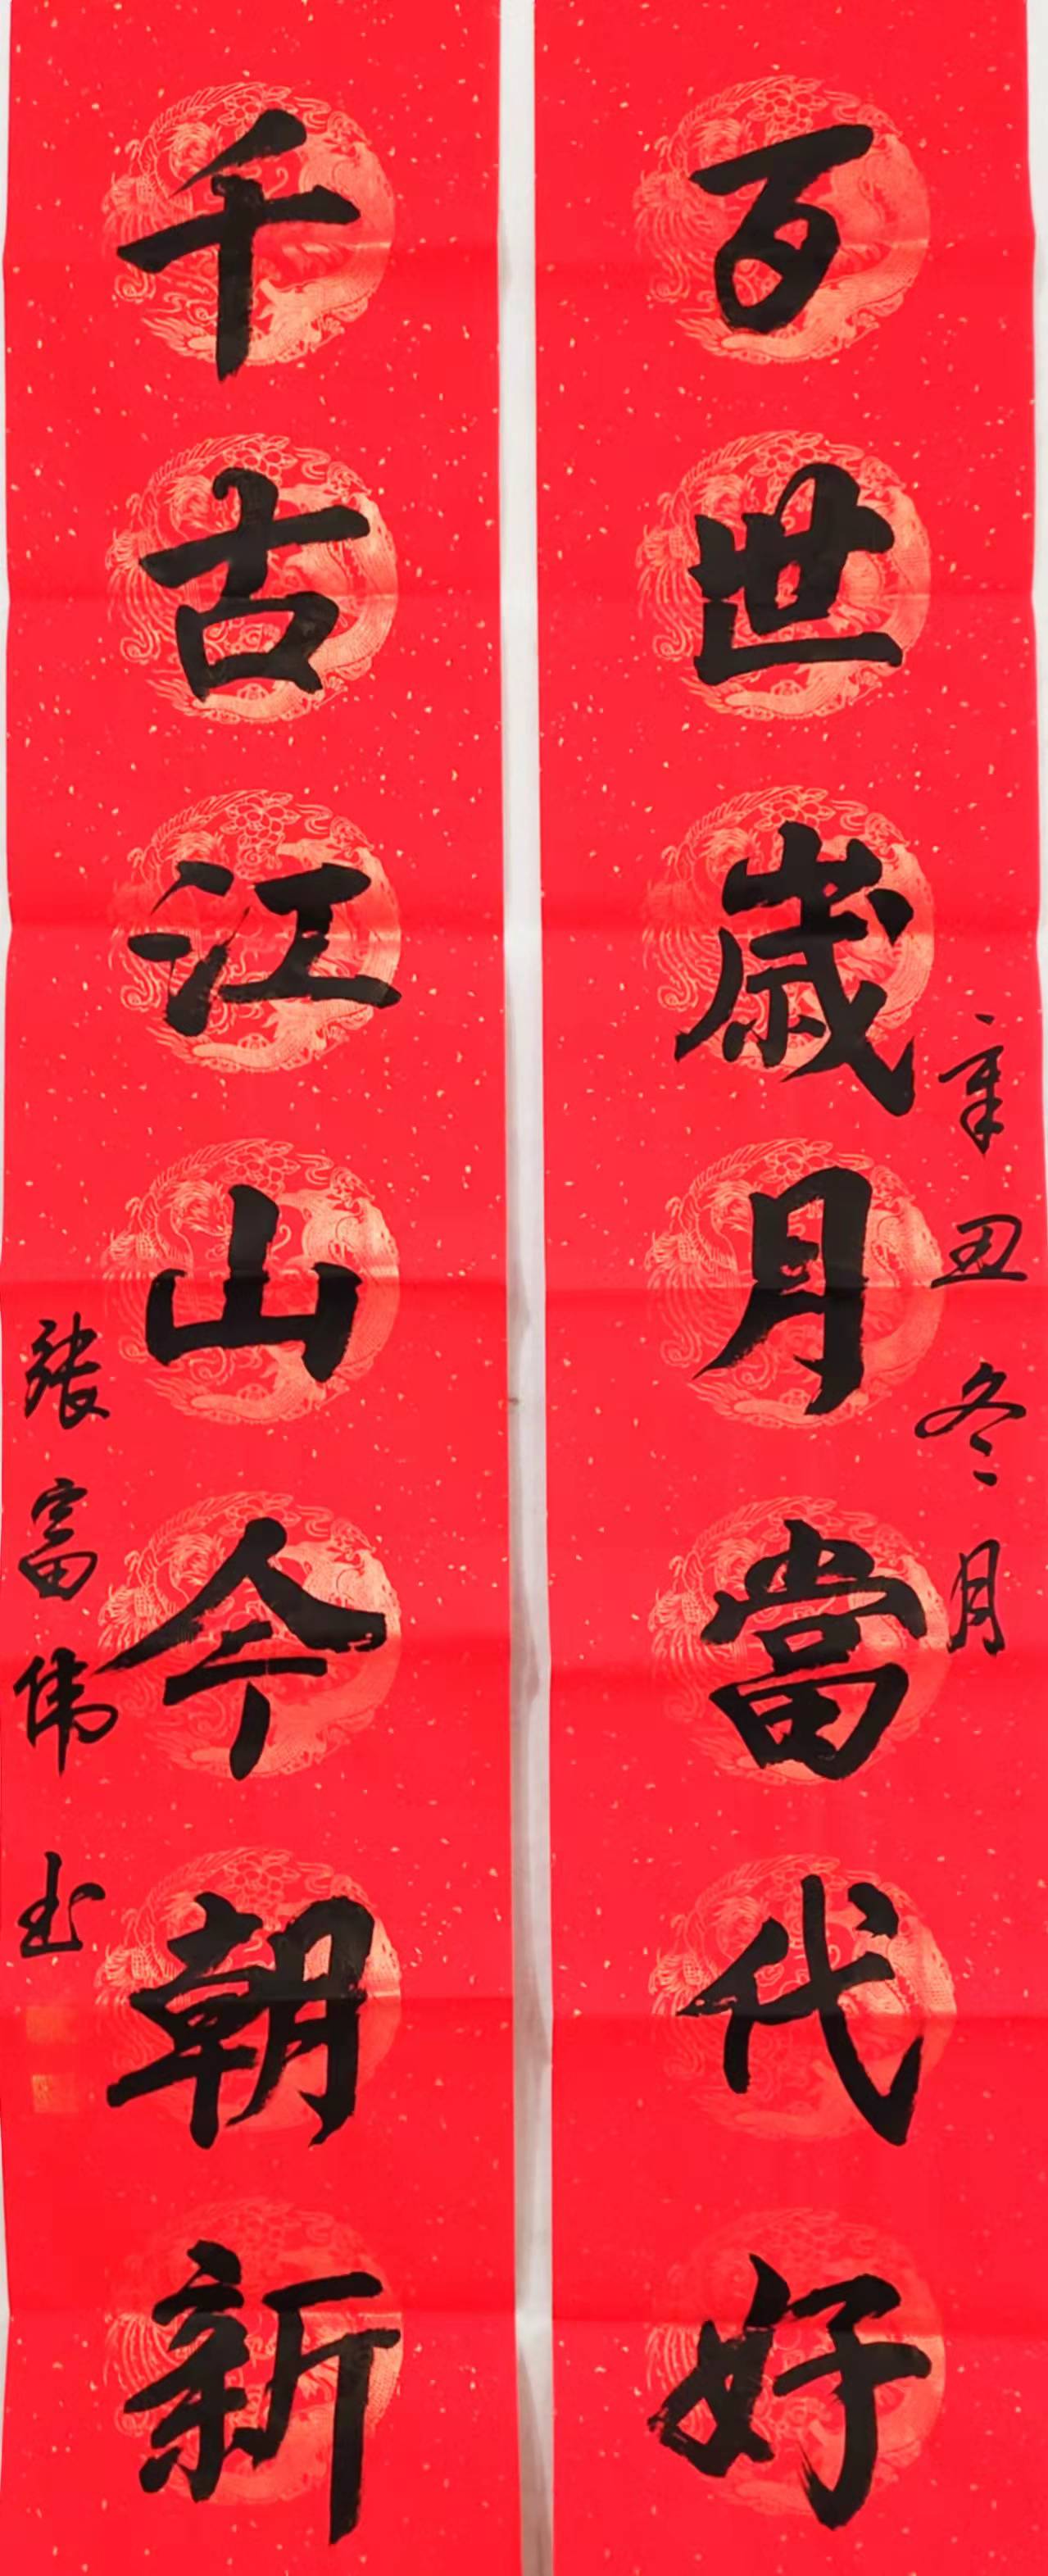 百世歲月當代好
辛丑冬月
千古江山今朝新
張富偉书